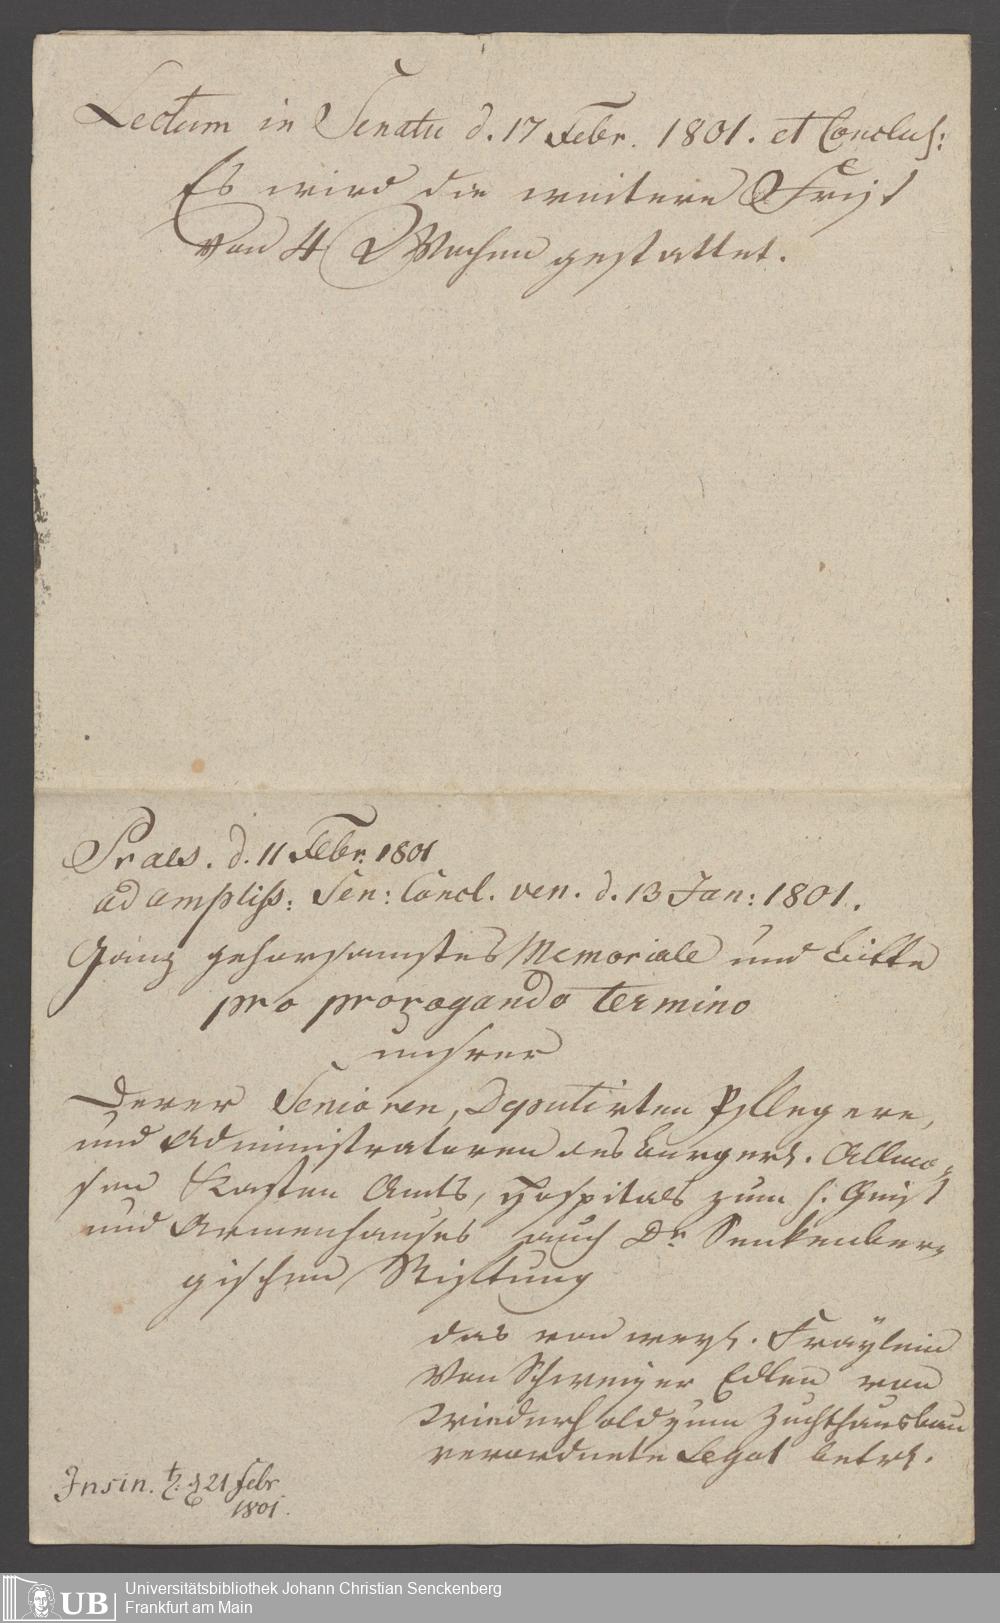 Lectum in Senatu d. 17 Febr. 1801. et Conclus:
Es wird die weitere Frist
von 4 Wochen gestattet.
Praes. d. 11 Febr. 1801
ad ampliss: Sen: Concl. ven. d. 13 Jan: 1801.
Ganz gehorsamstes Memoriale und Bitte
pro prorogando termino
unsrer
Derer Senioren, Deputirten Pflegere,
und Administratoren des burgerl. Allmo-
sen Kasten Amts, Hospitals zum h. Geist
und Armenhauses auch Dr. Senkenber-
gischen Stiftung
das von weyl. Fräylein
von Schweizer Edlen von
Wiederhold zum Zuchthausbau
verordnete Legat betrf.
Insin. d. 21 Febr
1801.
Universitätsbibliothek Johann Christian Senckenberg
UB Frankfurt am Main